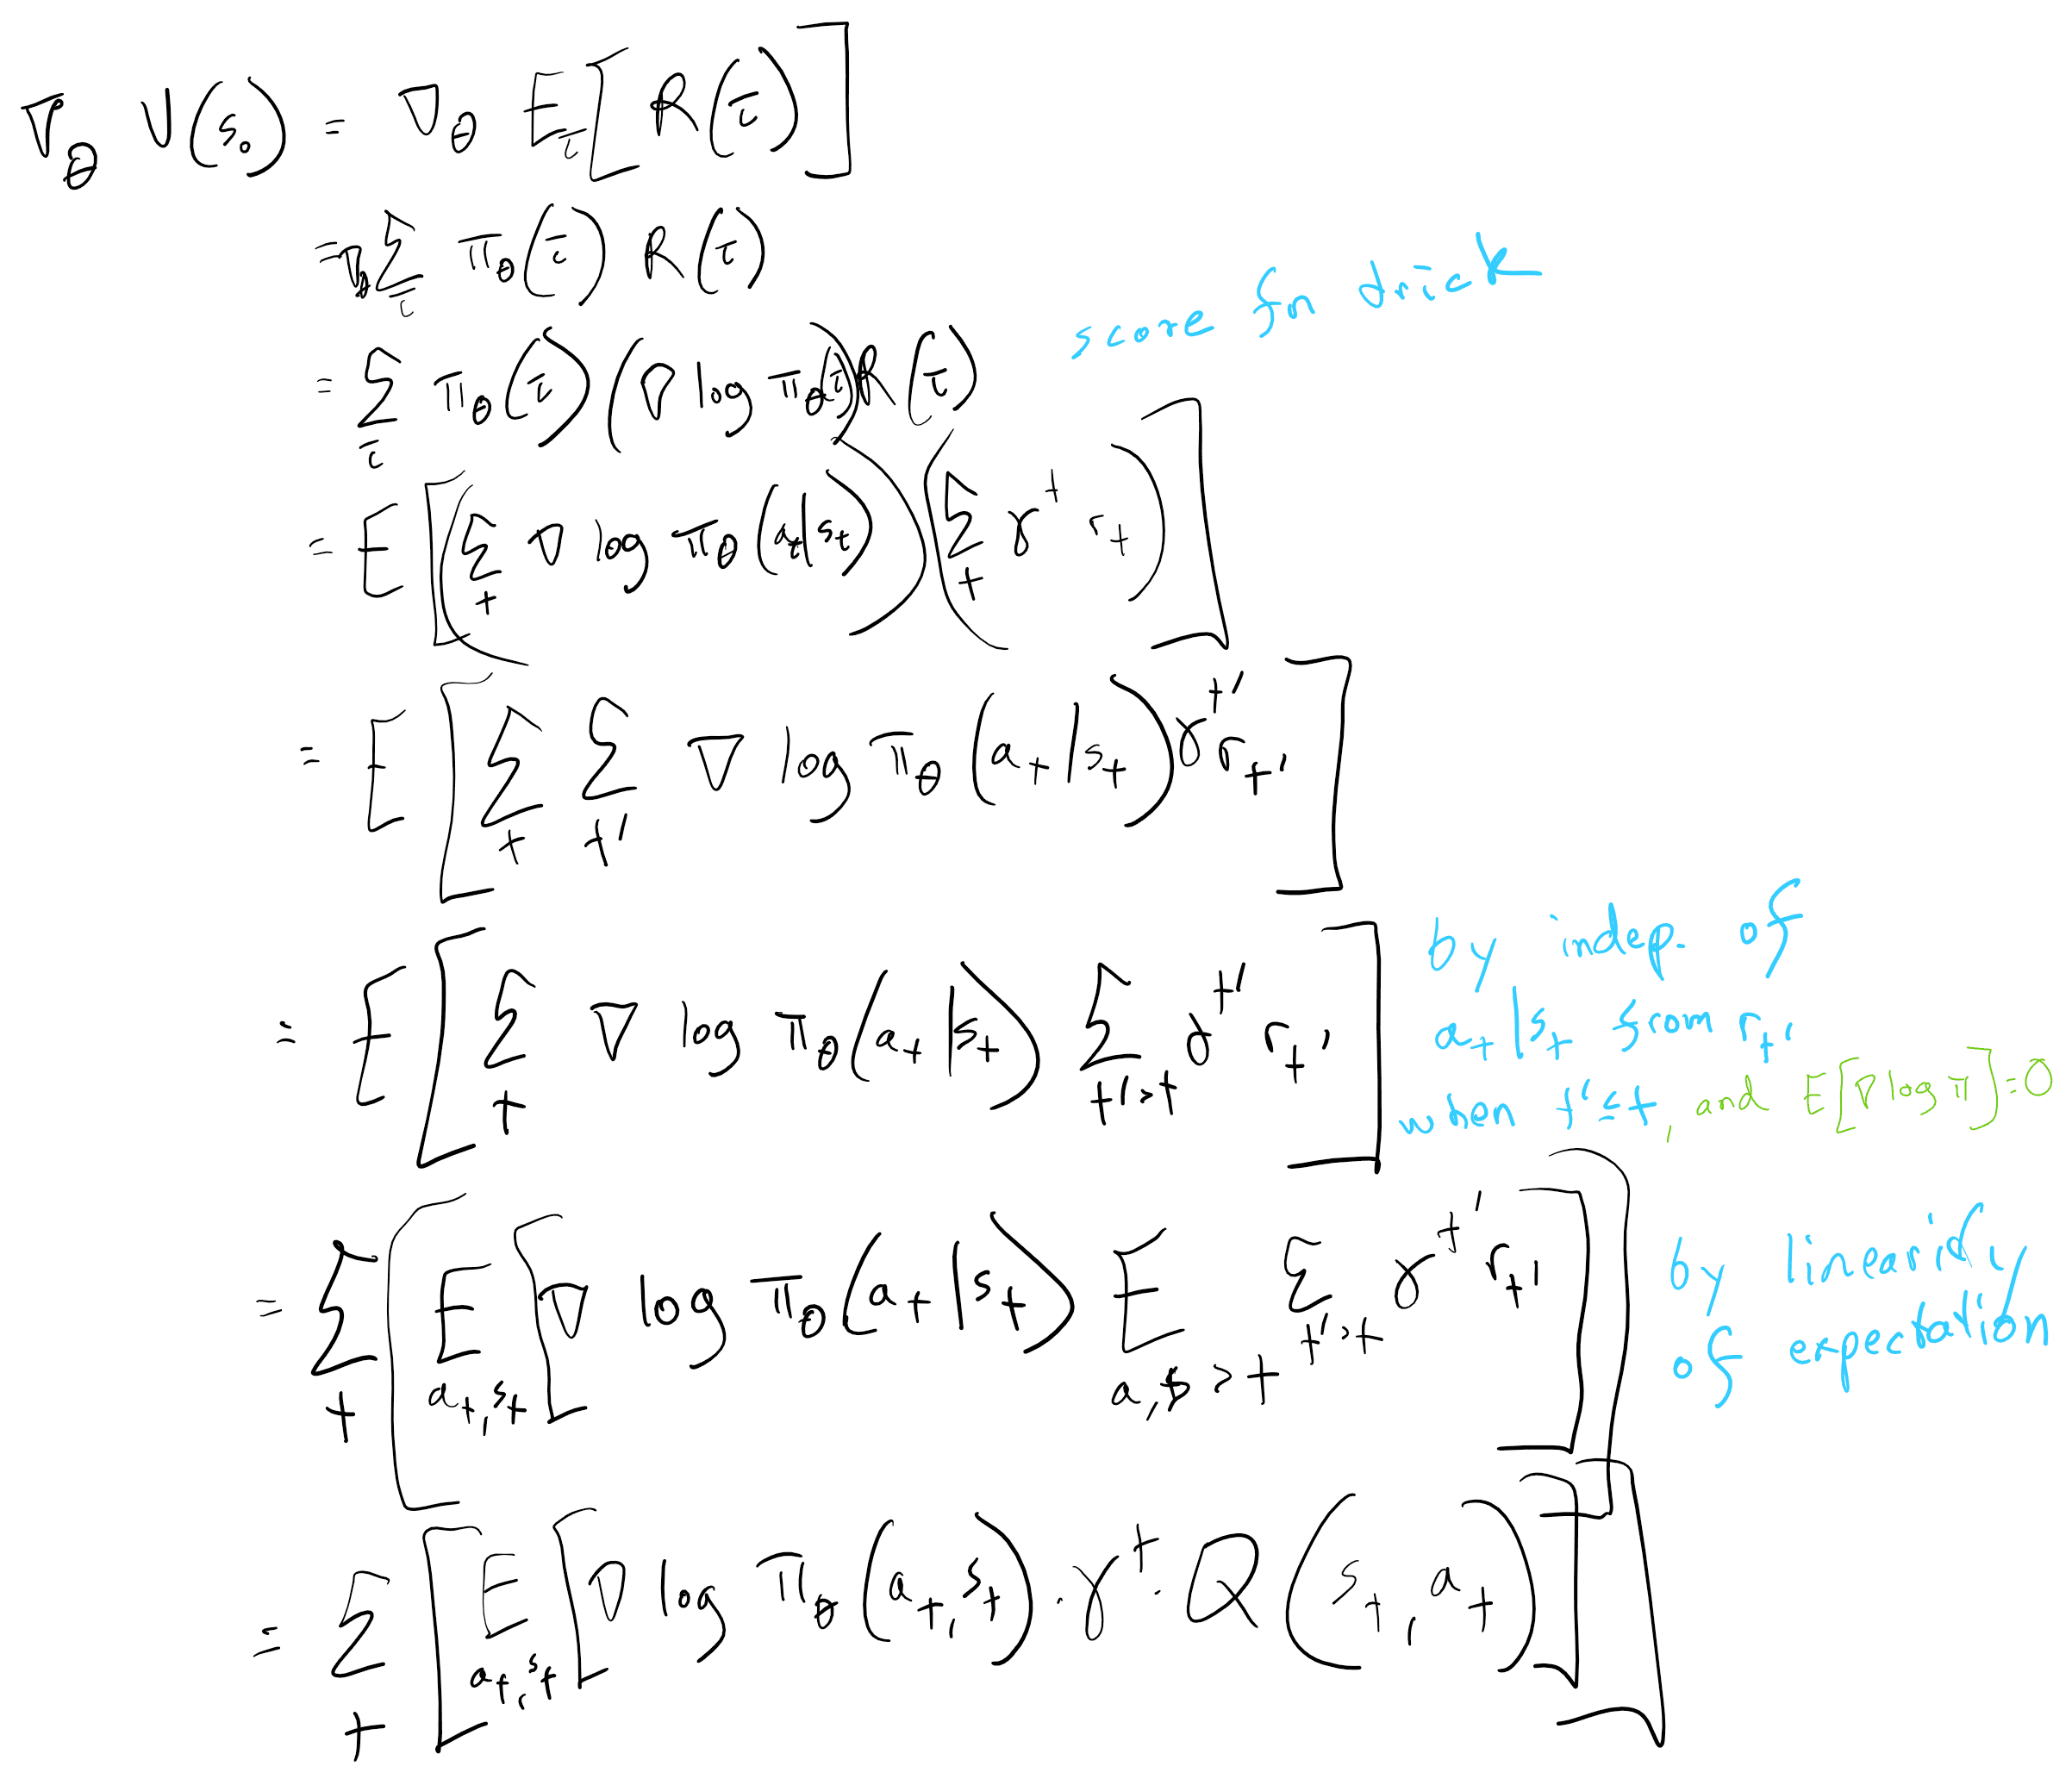 ∇_θ V(s_0) = ∇_θ E_τ[R(τ)]
= ∇_θ Σ_τ π_θ(τ) R(τ)
score fn trick
= Σ_τ π_θ(τ) (∇ log π_θ(τ)) R(τ)
= E[(Σ_t ∇ log π_θ(a_t|s_t)) (Σ_t γ^t r_t)]
= E[Σ_t Σ_t' ∇ log π_θ(a_t|s_t) γ^t' r_t']
= E[Σ_t ∇ log π_θ(a_t|s_t) Σ_{t'>t} γ^t' r_t']
by indep. of
a_t|s_t from r_t'
when t'≤t, and E[∇ log π]=0
= Σ_t [E_{a_t,s_t}[∇ log π_θ(a_t|s_t) E_{a,s>t} Σ_{t'>t} γ^t' r_t']]
by linearity
of expectation
= Σ_t [E_{a_t,s_t}[∇ log π_θ(a_t,s_t) · γ^t · Q(s_t, a_t)]]